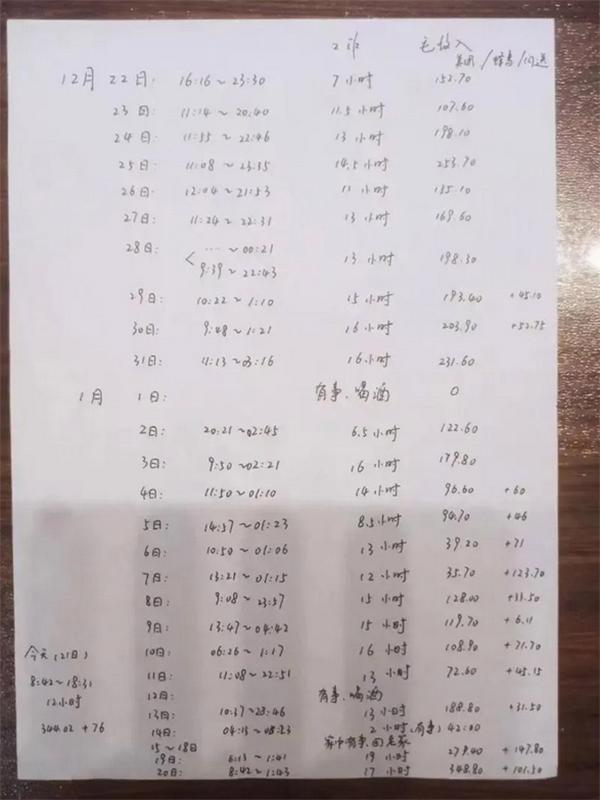 工作 毛收入
美团/蜂鸟/闪送
12月 22日: 16:16~23:30 7小时 152.70
23日: 11:14~20:40 11.5小时 107.60
24日: 11:55~22:46 13小时 198.10
25日: 11:08~23:35 14.5小时 253.70
26日: 12:04~21:53 11小时 135.10
27日: 11:24~22:31 13小时 169.60
28日: < ...~00:21
9:39~22:43 13小时 198.30
29日: 10:22~1:10 15小时 193.40 +45.10
30日: 9:48~1:21 16小时 203.90 +52.75
31日: 11:13~03:16 16小时 231.60
1月 1日: 有事、喝酒 0
2日: 20:21~02:45 6.5小时 122.60
3日: 9:50~02:21 16小时 179.80
4日: 11:50~01:10 14小时 96.60 +60
5日: 14:57~01:23 8.5小时 94.70 +46
6日: 10:50~01:06 13小时 39.20 +71
7日: 13:21~01:15 12小时 35.70 +123.70
8日: 9:08~23:57 15小时 128.00 +33.50
9日: 13:47~04:42 15小时 119.70 +6.11
10日: 06:26~1:17 16小时 108.90 +71.70
11日: 11:08~22:51 13小时 72.60 +45.15
12日: 有事、喝酒
13日: 10:37~23:46 13小时 188.80 +31.50
14日: 04:15~08:23 2小时(有事) 42.00
15~18日 家中有事,回老家
19日: 6:13~1:41 19小时 279.40 +147.80
20日: 8:42~1:43 17小时 348.80 +101.50
今天(21日)
8:42~18:31
12小时
344.02+76